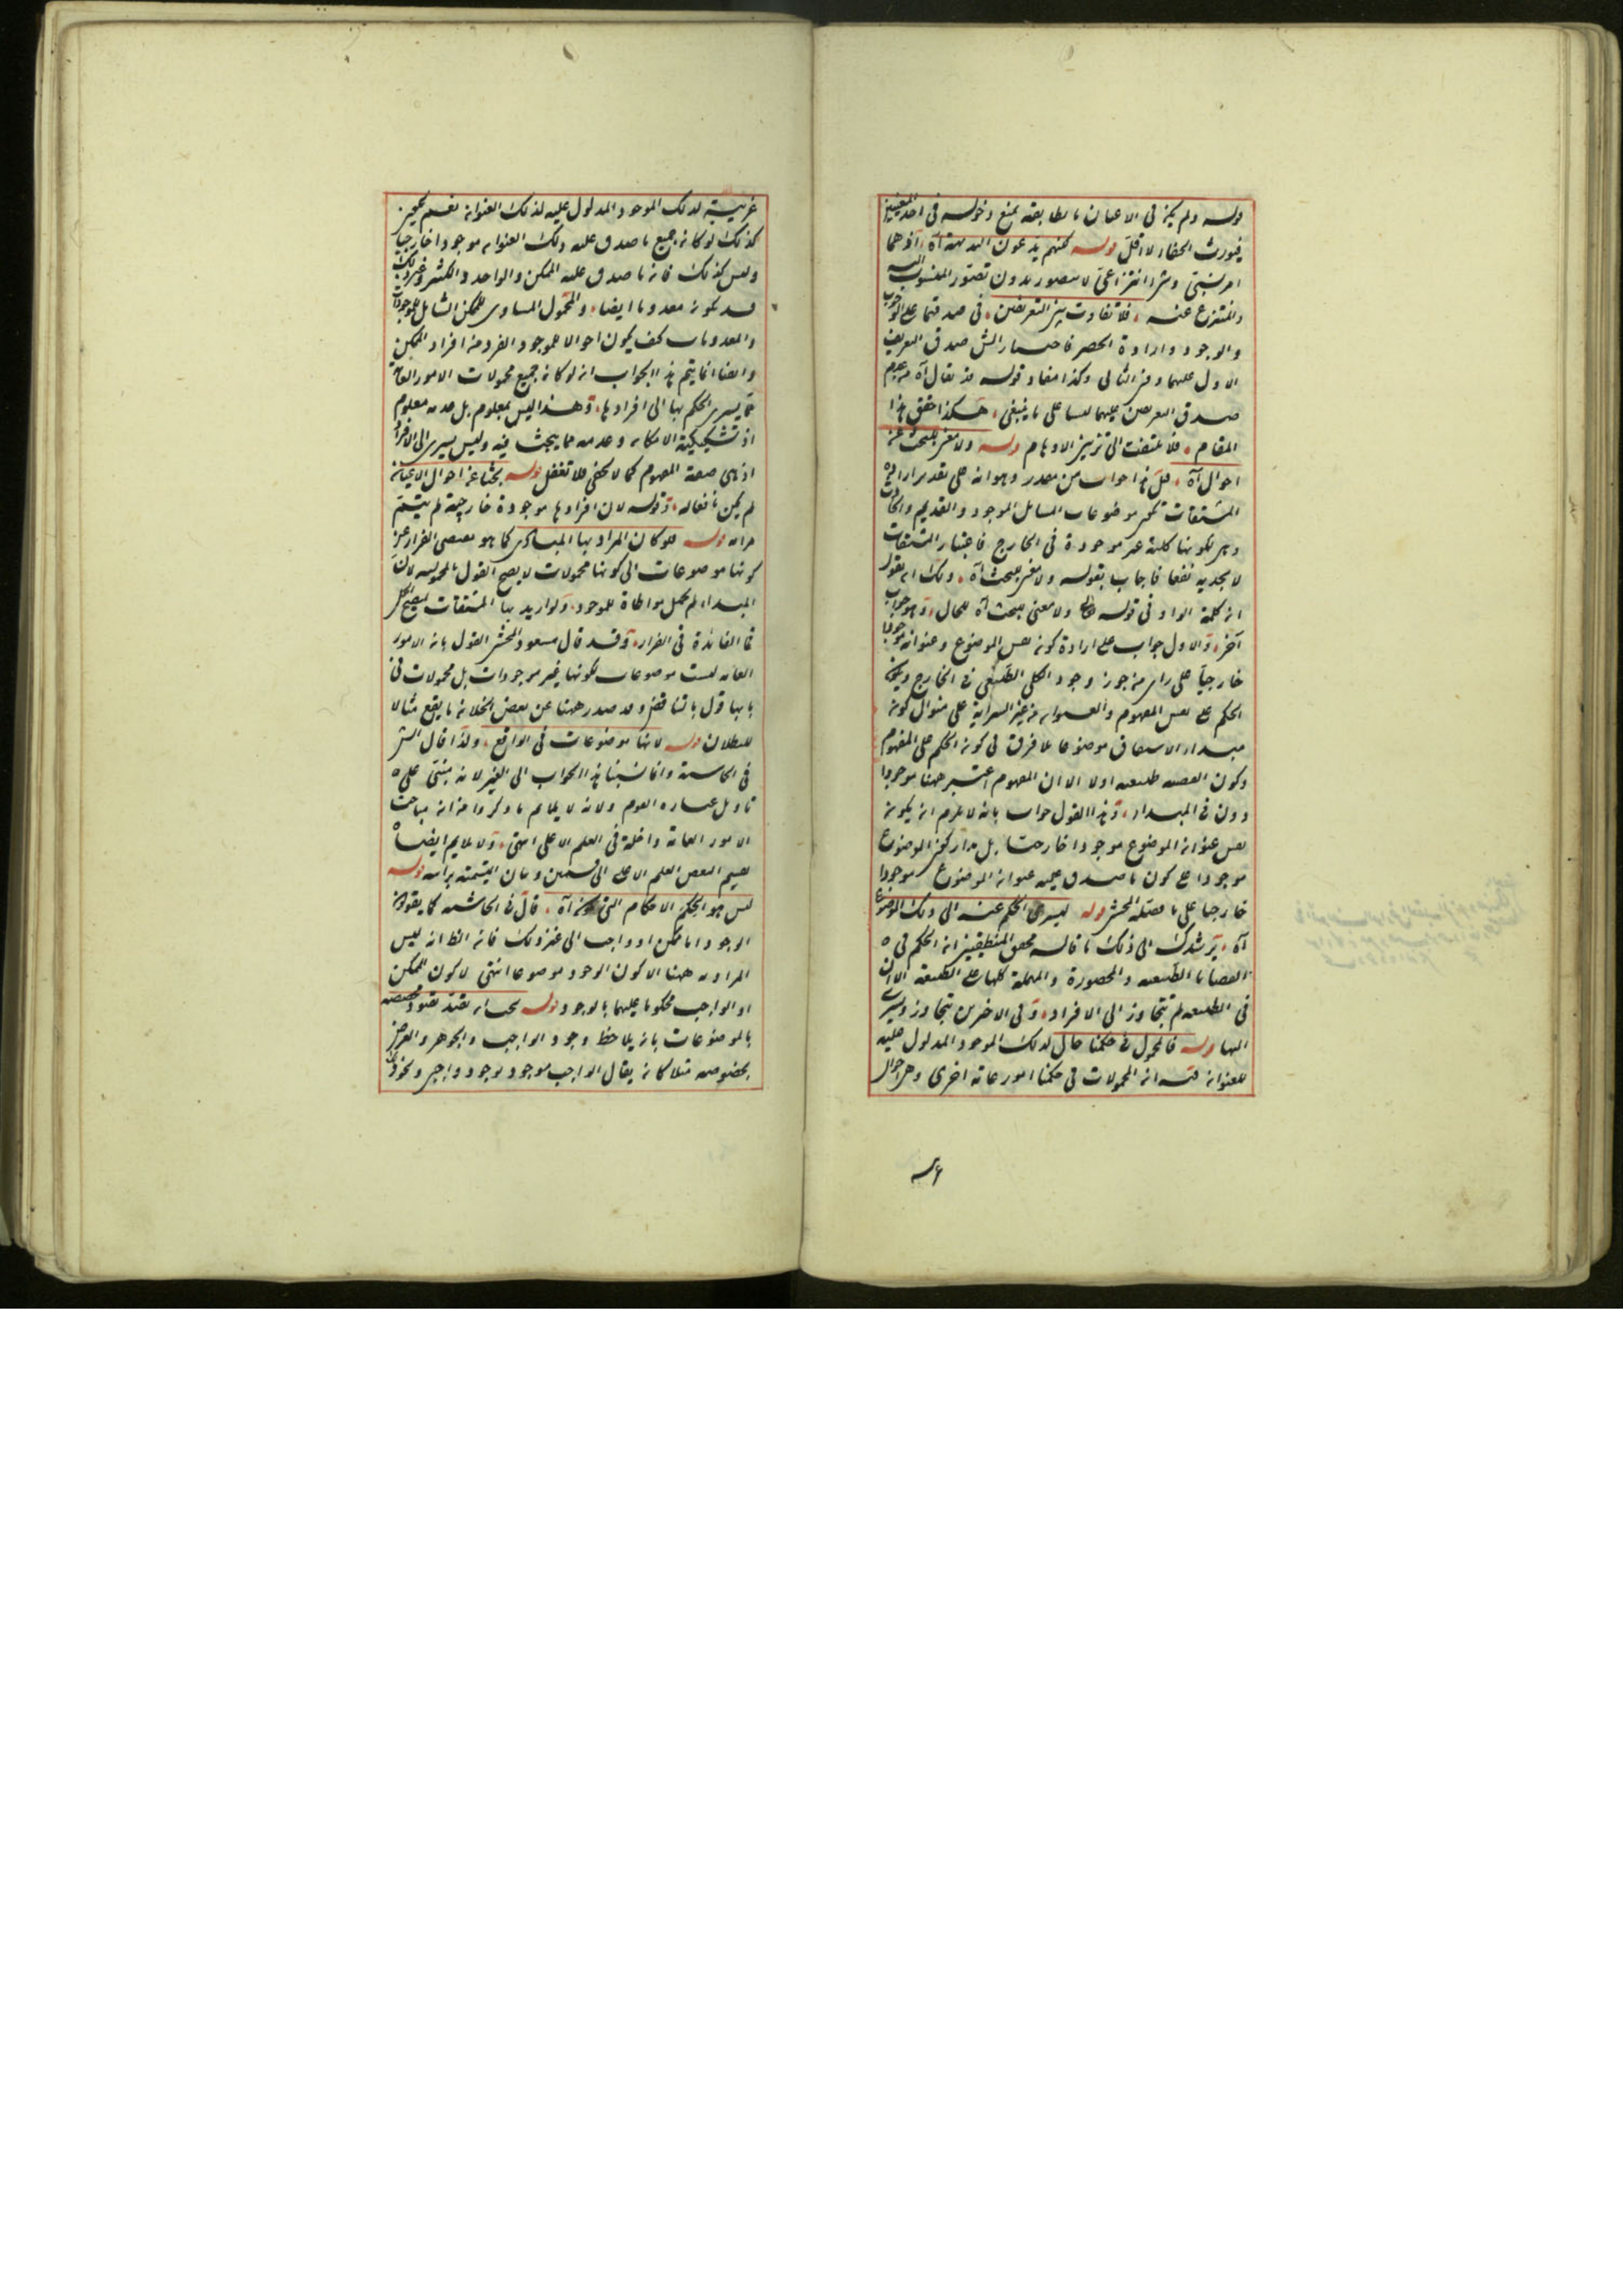 قوله ولم يكن فى الاعيان ما يطابقه يمنع دخوله فى احد القسمين
فيورث الخفاء لا اقل قوله كلهم يدعون البديهة آه اذ هما
امر نسبتى وشئ انتزاعى لا يتصور بدون تصور المنسوب اليه
والمنتزع عنه فلا تفاوت بين التعريفين فى صدقهما على الوجوب
والوجود وارادة الحصر فاختيار الش صدق التعريف
الاول عليهما دون الثانى وكذا مفاد قوله قد يقال آه من عدم
صدق التعريفين عليهما ليسا على ما ينبغى هكذا حقق هذا
المقام فلا تلتفت الى الاوهام قوله ولا معنى للبحث عن
احوال آه قيل هذا جواب من مقدر وهو انه على تقدير ارادة
المشتقات تكون موضوعات المسائل الموجود والقديم والحادث
وهى لكونها كلية غير موجودة فى الخارج فاختيار المشتقات
لا يجديه نفعا فاجاب بقوله ولا معنى للبحث آه ولك ان تقول
ان كلمة الواو فى قوله ولا معنى للبحث آه للحال وهو جواب
آخر والاول جواب على ارادة كون نفس الموضوع وعنوانه موجودا
خارجيا على رأى من جوز وجود الكلى الطبيعى فى الخارج
الحكم على نفس المفهوم والعنوان من غير السراية على منوال كون
مبدأ الاشتقاق موضوعا فلا فرق فى كون الحكم على المفهوم
وكون القضية طبيعية اولا الا ان المفهوم اعتبر ههنا موجودا
دون فى المبدأ وهذا القول جواب بانه لا يلزم ان يكون
نفس عنوان الموضوع موجودا خارجيا بل مدار كون الموضوع
موجودا على كون ما صدق عليه عنوان الموضوع موجودا
خارجيا على ما فصله المحشى قوله ليسرى الحكم عنه الى ذلك الموضوع
آه يرشدك الى ذلك ما قاله محققى المنطقيين ان الحكم فى
القضايا الطبيعية والمحصورة والمهملة كلها على الطبيعة الا ان
فى الطبيعية لم يتجاوز الى الافراد وفى الاخرين يتجاوز ويسرى
اليها قوله فالمحمول فى حكمنا حال لذلك الموجود المدلول عليه
للعنوان فيه ان المحمولات فى حكمنا امور عامة اخرى وهى احوال
غريبة لذلك الموجود المدلول عليه لذلك العنوان نعم يكون
كذلك لو كان جميع ما صدق عليه ذلك العنوان موجودا خارجيا
وليس كذلك فان ما صدق عليه الممكن والواحد والكثير وغير ذلك
قد يكون معدوما ايضا والمحمول المساوى للممكن الشامل للموجودات
والمعدومات كيف يكون احوالا للموجود الفرد من افراد الممكن
وايضا انما يتم هذا الجواب ان لو كان جميع محمولات الامور العامة
مما يسرى الحكم بها الى افرادها وهذا ليس بمعلوم بل عدمه معلوم
اذ تشكيكية الامكان وعدمه مما يبحث فيه وليس يسرى الى الافراد
اذ هى صفة المفهوم كما لا يخفى فلا تغفل قوله بحثا عن احوال الاعيان
لم يكن نافعا له وقوله لان افرادها موجودة خارجية لم يتم
مرامه قوله فلو كان المراد بها المبادى كما هو مقتضى الفرار عن
كونها موضوعات الى كونها محمولات لا يصح القول بالمحمولية لان
المبدأ لم يحمل مواطاة للموجود ولو اريد بها المشتقات ليصح الحمل
فما الفائدة فى الفرار وقد قال مسعود المحشى القول بان الامور
العامة ليست موضوعات لكونها غير موجودات بل محمولات فى
بابها قول بالتناقض وقد صدر ههنا عن بعض الخلان ما يقع مثالا
للبطلان قوله لانها موضوعات فى الواقع ولذا قال الش
فى الحاشية وانما نسبنا هذا الجواب الى الغير لانه مبنى على
تأويل عبارة القوم ولانه لا يلائم ما ذكروا من ان مباحث
الامور العامة داخلة فى العلم الاعلى انتهى ولا يلائم ايضا
تقسيم البعض العلم الاعلى الى قسمين وبيان القسمة برأسه قوله
ليس هو الحكم الاحكام التى آه قال فى الحاشية كما يقولون
الوجود اما ممكن او واجب الى غير ذلك فان الظ انه ليس
المراد به ههنا الا كون الوجود موضوعا انتهى لا كون الممكن
او الواجب محكوما عليهما بالوجود قوله يجب ان يقيد بقيود مخصصة
بالموضوعات بان يلاحظ وجود الواجب والجوهر والعرض
بخصوصه مثلا كان يقال الواجب موجود بوجود واجبى ونحو ذلك